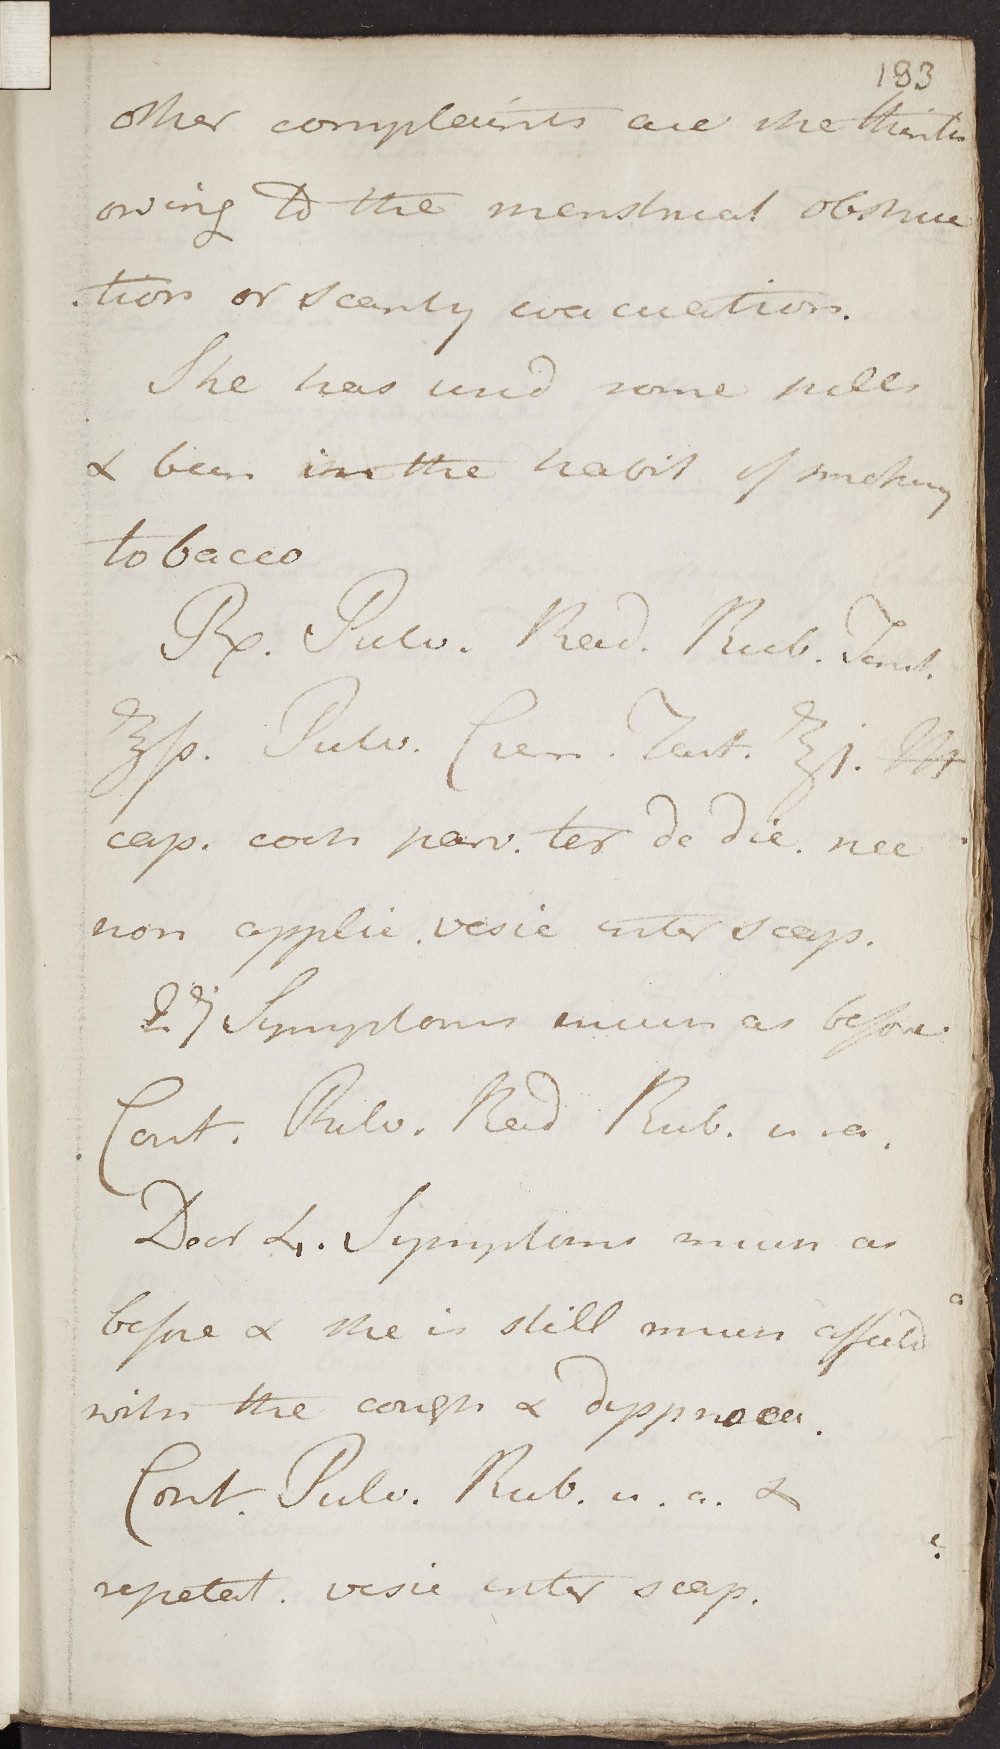 183
other complaints are she thinks
owing to the menstrual obstruc
-tion or scanty evacuation.
She has used some pills
& been in the habit of smoking
tobacco
Rx. Pulv. Rad. Rub. Tinct.
℥ss. Pulv. Crem. Tart. ℥j. M
cap. coch parv. ter de die. nec
non applic. vesic inter scap.
27 Symptoms much as before
Cont. Pulv. Rad Rub. u. a.
Decr 4. Symptoms much as
before & she is still much affected
with the cough & dyspnoea.
Cont. Pulv. Rub. u. a. &
repetat. vesic inter scap.